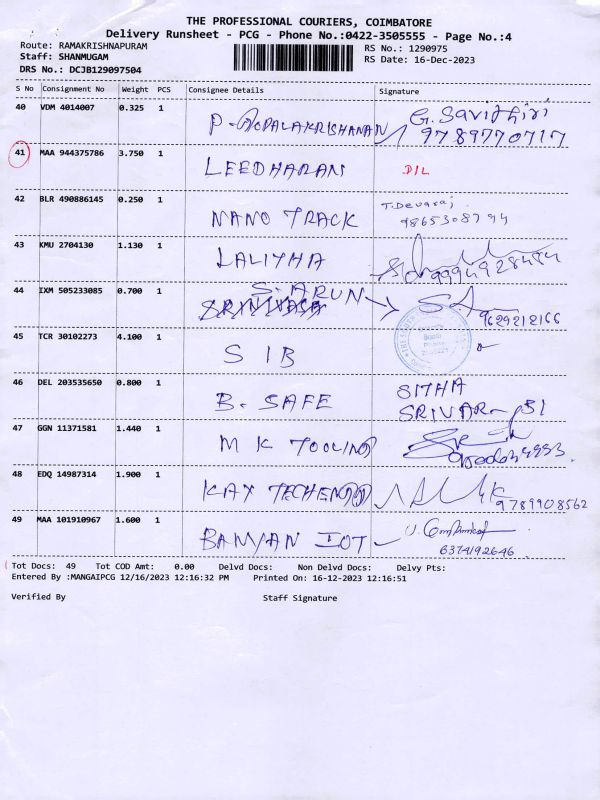 THE PROFESSIONAL COURIERS, COIMBATORE
Delivery Runsheet - PCG - Phone No.:0422-3505555 - Page No.:4
Route: RAMAKRISHNAPURAM RS No.: 1290975
Staff: SHANMUGAM RS Date: 16-Dec-2023
DRS No.: DCJB129097504
S No Consignment No Weight PCS Consignee Details Signature
40 VDM 4014007 0.325 1 P-GOPALAKRISHANAN G. Savithiri
9789770717
41 MAA 944375786 3.750 1 LEEDHARAN DIL
42 BLR 490886145 0.250 1 NANO TRACK T.Devaraj
9865308794
43 KMU 2704130 1.130 1 LALITHA 9994928484
44 IXM 505233085 0.700 1 S. ARUN
9629212166
45 TCR 30102273 4.100 1 SIB
46 DEL 203535650 0.800 1 B. SAFE SITHA
47 GGN 11371581 1.440 1 M K TOOLING
48 EDQ 14987314 1.900 1 KAY 9789908562
49 MAA 101910967 1.600 1 BANYAN IOT
6374192646
Tot Docs: 49 Tot COD Amt: 0.00 Delvd Docs: Non Delvd Docs: Delvy Pts:
Entered By :MANGAIPCG 12/16/2023 12:16:32 PM Printed On: 16-12-2023 12:16:51
Verified By Staff Signature